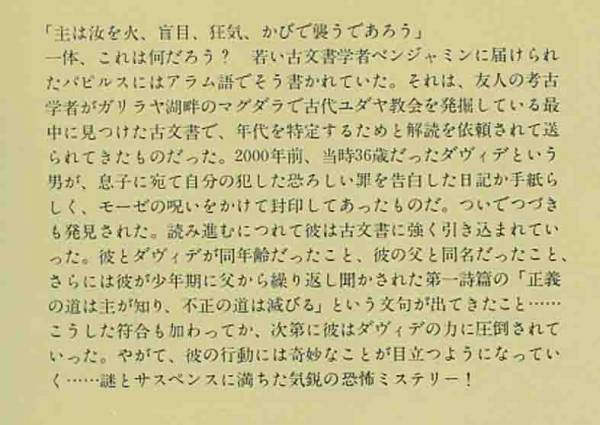 「主は汝を火、盲目、狂気、かびで襲うであろう」
一体、これは何だろう？　若い古文書学者ベンジャミンに届けられ
たパピルスにはアラム語でそう書かれていた。それは、友人の考古
学者がガリラヤ湖畔のマグダラで古代ユダヤ教会を発掘している最
中に見つけた古文書で、年代を特定するためと解読を依頼されて送
られてきたものだった。2000年前、当時36歳だったダヴィデという
男が、息子に宛て自分の犯した恐ろしい罪を告白した日記か手紙ら
しく、モーゼの呪いをかけて封印してあったものだ。ついでつづき
も発見された。読み進むにつれて彼は古文書に強く引き込まれてい
った。彼とダヴィデが同年齢だったこと、彼の父と同名だったこと、
さらには彼が少年期に父から繰り返し聞かされた第一詩篇の「正義
の道は主が知り、不正の道は滅びる」という文句が出てきたこと……
こうした符合も加わってか、次第に彼はダヴィデの力に圧倒されて
いった。やがて、彼の行動には奇妙なことが目立つようになってい
く……謎とサスペンスに満ちた気鋭の恐怖ミステリー！